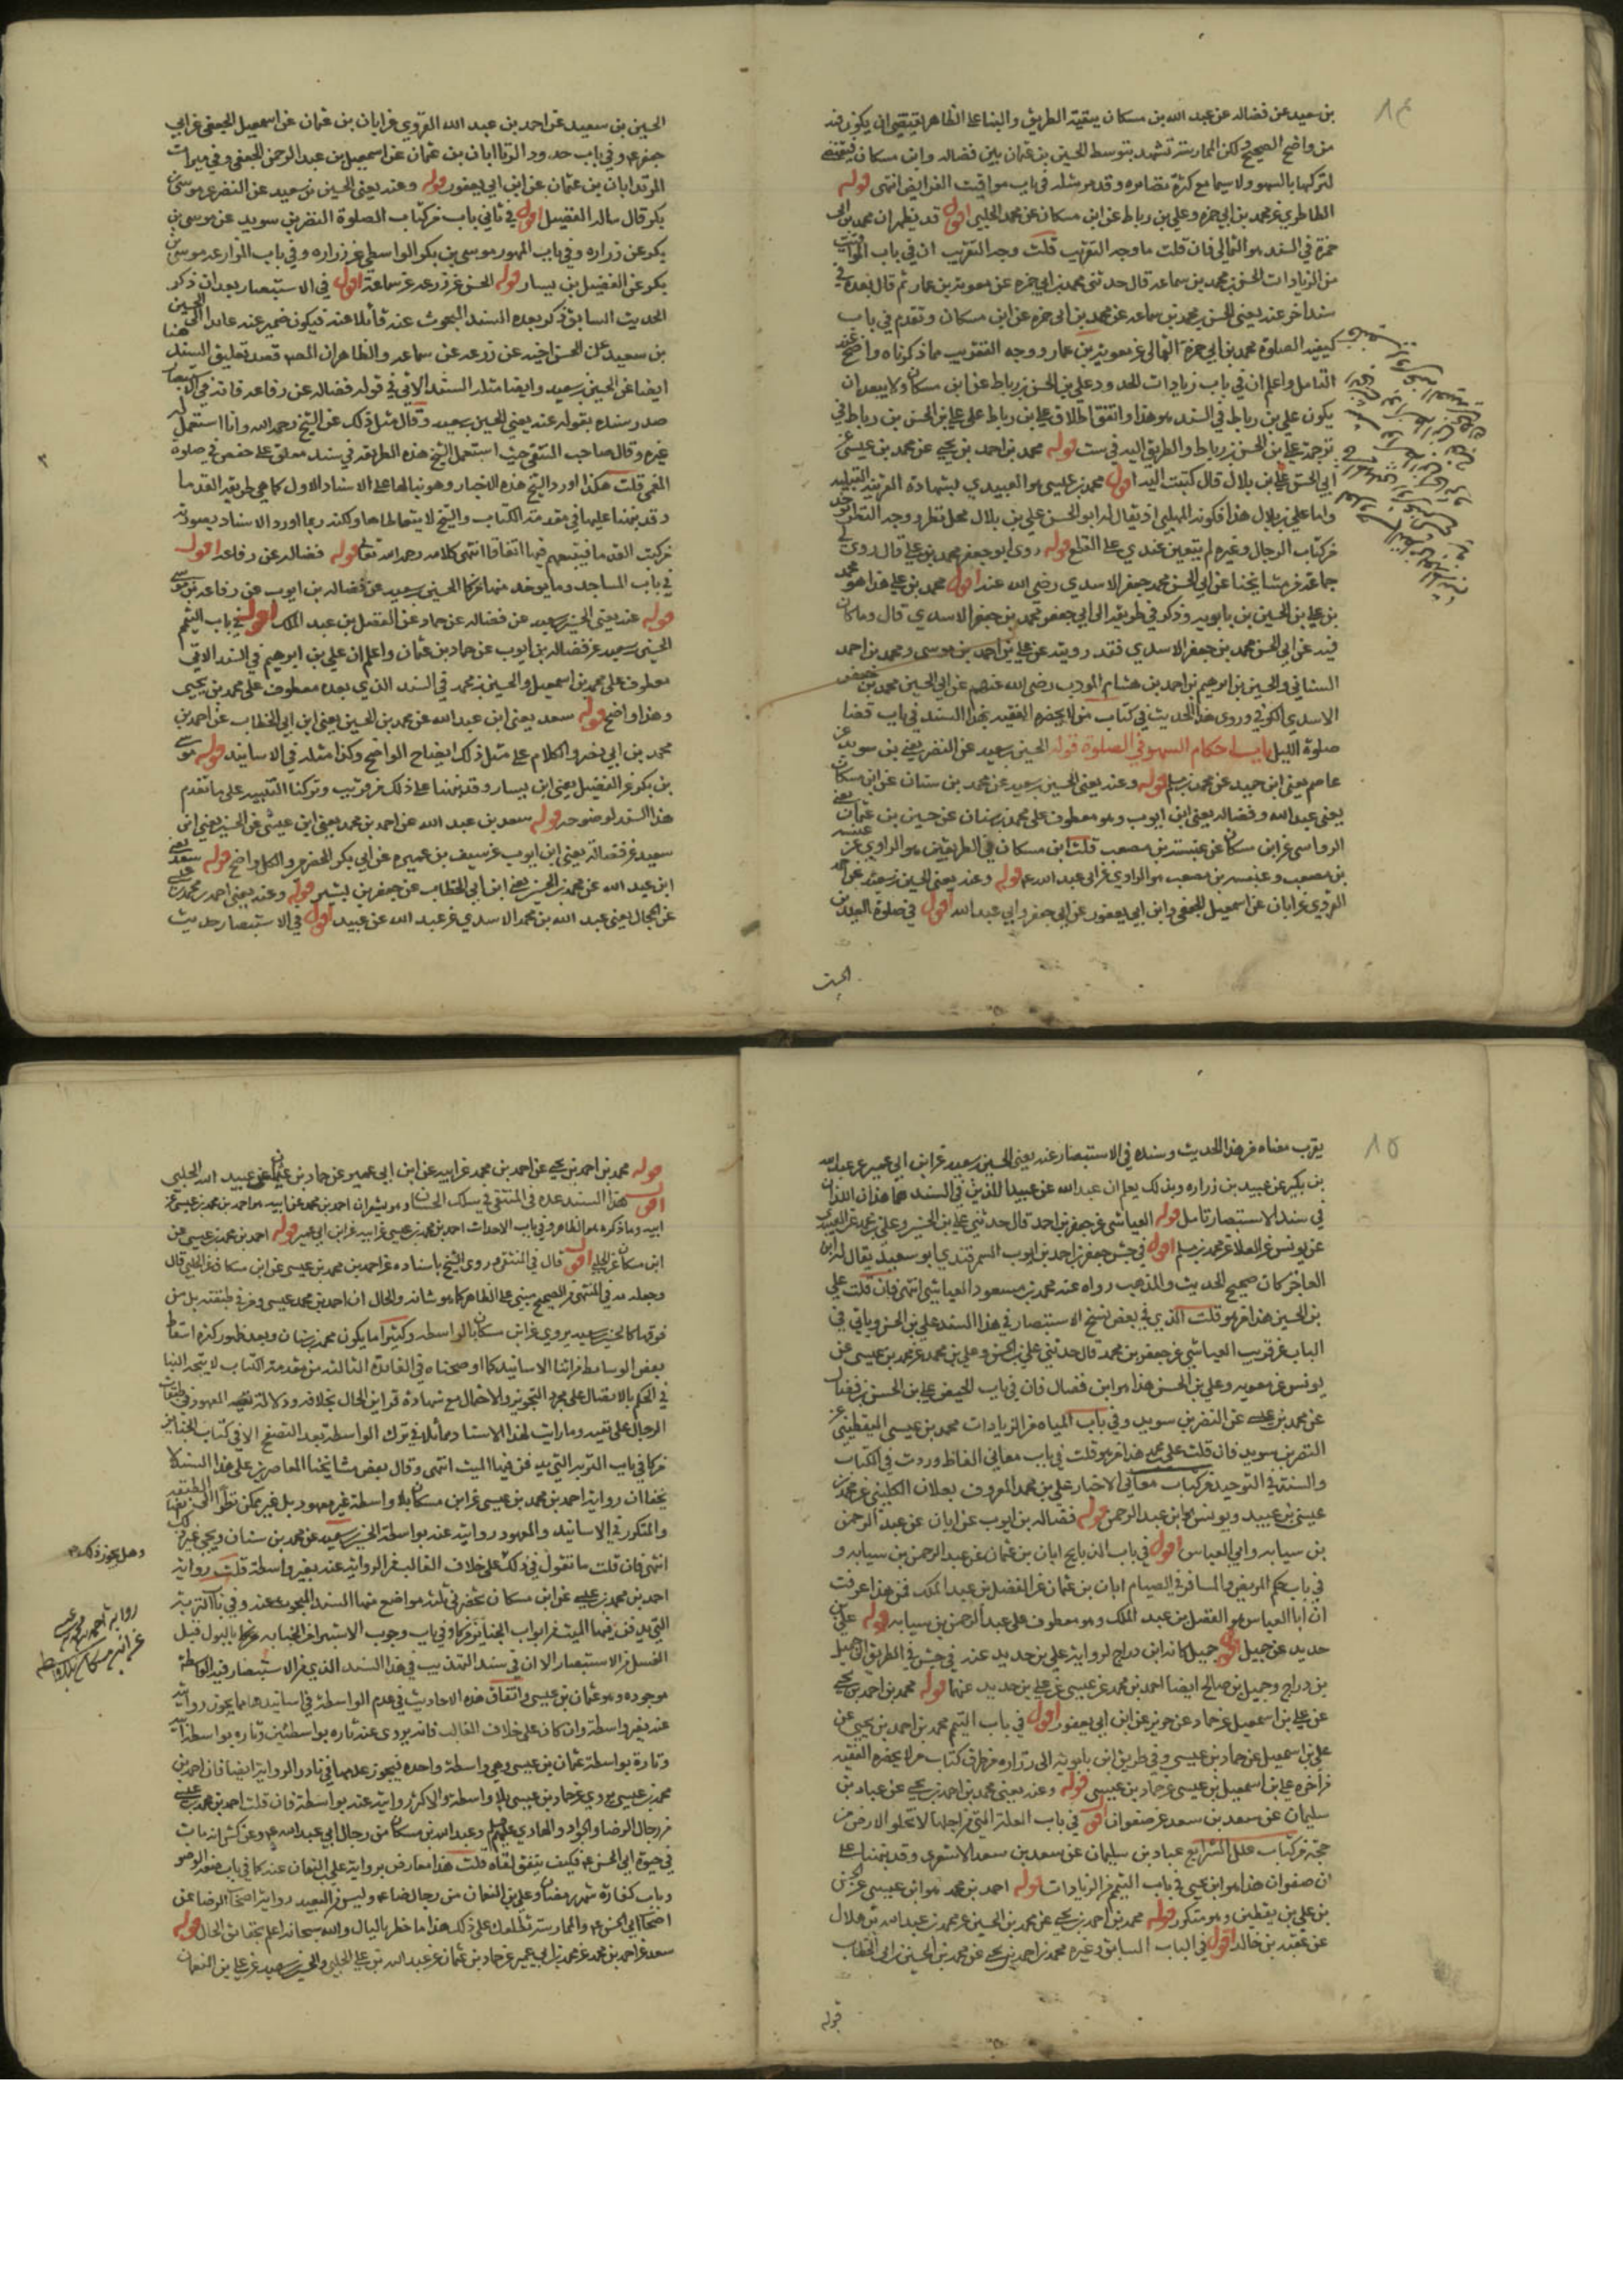 ٨٤
بن سعيد عن فضاله عن عبد الله بن مسكان ببقية الطريق والبناء على الظاهر يقتضى ان يكون هذه
من واضح الصحيح لكن الممارسة تشهد بتوسط الحسين بن عثمان بين فضاله وابن مسكان
لتركها بالسهو ولا سيما مع كثرة نظايره وقد مر مثله في باب مواقيت الفرايض انتهى قوله
الطاطري عن محمد بن ابي حمزه وعلي بن رباط عن ابن مسكان عن محمد الحلبي اقول قد يظهر ان محمد بن ابي
حمزة في السند هو الثمالي فان قلت ما وجه التقريب قلت وجه التقريب ان في باب المواقيت
من الزيادات الحسن بن محمد بن سماعه قال حدثني محمد بن ابي حمزه عن معوية بن عمار ثم قال بعده في
سند اخر عنه يعني الحسن بن محمد بن سماعه عن محمد بن ابي حمزه عن ابن مسكان وتقدم في باب
كيفية الصلوة محمد بن ابي حمزة الثمالي عن معوية بن عمار ووجه التقريب مما ذكرناه واضح عند
التامل واعلم ان في باب زيادات الحدود علي بن الحسن بن رباط عن ابن مسكان ولا يبعد ان
يكون علي بن رباط في السند هو هذا واتفق اطلاق علي بن رباط على علي بن الحسن بن رباط في
ترجمة علي بن الحسن بن رباط والطريق اليه في ست قوله محمد بن احمد بن يحيى عن محمد بن عيسى عن
ابي الحسن علي بن بلال قال كتبت اليه اقول محمد بن عيسى هو العبيدي بشهادة القرينة
واما علي بن بلال هذا فكونه المهلبي اذ يقال له ابو الحسن علي بن بلال محل نظر ووجه النظر
من كتاب الرجال وغيره لم يتعين عندي على القطع قوله روى ابو جعفر محمد بن علي قال روى لي
جماعة من مشايخنا عن ابي الحسن محمد جعفر الاسدي رضي الله عنه اقول محمد بن علي هذا هو محمد
بن علي بن الحسين بن بابويه وذكر في طريقه الى ابي جعفر محمد بن جعفر الاسدي قال وما كان
فيه عن ابي الحسن محمد بن جعفر الاسدي فقد رويته عن علي بن احمد بن موسى ومحمد بن احمد
السناني والحسين بن ابرهيم بن احمد بن هشام المودب رضي الله عنهم عن ابي الحسين محمد بن جعفر
الاسدي الكوفي وروى هذا الحديث في كتاب من لا يحضره الفقيه بهذا السند في باب قضا
صلوة الليل باب احكام السهو في الصلوة قوله الحسين بن سعيد عن النضر يعني بن سويد عن
عاصم يعني ابن حميد عن محمد بن مسلم قوله وعنه يعني الحسين بن سعيد عن محمد بن سنان عن ابن مسكان
يعني عبد الله وفضاله يعني ابن ايوب وهو معطوف على محمد بن سنان عن حسين بن عثمان يعني
الرواسي عن ابن مسكان عن عنبسة بن مصعب قلت ابن مسكان في الطريقين هو الراوي عن عنبسه
بن مصعب وعنبسه بن مصعب هو الراوي عن ابي عبد الله عم قوله وعنه يعني الحسين بن سعيد عن
القروي عن ابان عن اسمعيل الجعفي وابن ابي يعفور عن ابي جعفر وابي عبد الله اقول في صلوة العيدين
الحسين
الحسين بن سعيد عن احمد بن عبد الله القروي عن ابان بن عثمان عن اسمعيل الجعفي عن ابي
جعفر عم وفي باب حدود الزنا ابان بن عثمان عن اسمعيل بن عبد الرحمن الجعفي وفي ميراث
المرتد ابان بن عثمان عن ابن ابي يعفور قوله وعنه يعني الحسين بن سعيد عن النضر عن موسى بن
بكر قال ساله الفضيل اقول في ثاني باب من كتاب الصلوة النضر بن سويد عن موسى بن
بكر عن زراره وفي باب المهور موسى بن بكر الواسطي عن زراره وفي باب النوادر عن موسى بن
بكر عن الفضيل بن يسار قوله الحسن عن زرعه عن سماعة اقول في الاستبصار بعد ان ذكر
الحديث السابق ذكر بعده السند المبحوث عنه قائلا عنه فيكون ضمير عنه عايدا الى الحسين
بن سعيد عن الحسن اخيه عن زرعه عن سماعه والظاهر ان المص قصد تعليق السند هنا
ايضا عن الحسين بن سعيد وايضا مثله السند الاتي في قوله فضاله عن رفاعه فانه في الاستبصار
صدر سنده بقوله عنه يعني الحسين بن سعيد وقال مثل ذلك عن الشيخ رحمه الله وانا استعمل
غيره وقال صاحب المنتقى حيث استعمل الشيخ هذه الطريقه في سند معلق على حفص في صلوة
المغمى قلت هكذا اورد الشيخ هذه الاخبار وهو بناء لها على الاسناد الاول كما هي طريقه القدما
وقد نبهنا عليها في مقدمة الكتاب والشيخ لا يتعاطاها ولكنه ربما اورد الاسناد بصورته
من كتب القدما فيتبعهم فيها اتفاقا انتهى كلامه رحمه الله تعالى قوله فضاله عن رفاعه اقول
في باب المساجد وما يوخذ منها الحسين بن سعيد عن فضاله بن ايوب عن رفاعه بن موسى
قوله عنه يعني الحسين بن سعيد عن فضاله عن حماد عن الفضل بن عبد الملك اقول في باب التيمم
الحسين بن سعيد عن فضاله بن ايوب عن حماد بن عثمان واعلم ان علي بن ابرهيم في السند الاتي
معطوف على محمد بن اسمعيل والحسين بن محمد في السند الذي بعده معطوف على محمد بن يحيى
وهذا واضح قوله سعد يعني ابن عبد الله عن محمد بن الحسين يعني ابن ابي الخطاب عن احمد بن
محمد بن ابي نصر والكلام على مثل ذلك ايضاح الواضح وكذا مثله في الاسانيد قوله موسى
بن بكر عن الفضيل يعني ابن يسار وقد نبهنا على ذلك من قريب وتركنا التقييد على ما تقدم
هذا السند لوضوحه قوله سعد بن عبد الله عن احمد بن محمد يعني ابن عيسى عن الحسين يعني ابن
سعيد عن فضالة يعني ابن ايوب عن سيف بن عميره عن ابي بكر الحضرمي والكل واضح قوله سعد يعني
ابن عبد الله عن محمد بن الحسين يعني ابن ابي الخطاب عن جعفر بن بشير قوله وعنه يعني احمد بن محمد بن عيسى
عن الحجال يعني عبد الله بن محمد الاسدي عن عبد الله عن عبيد اقول في الاستبصار حديث
٨٥
يقرب معناه من هذا الحديث وسنده في الاستبصار عنه يعني الحسين بن سعيد عن ابن ابي عمير عن عبد الله
بن بكير عن عبيد بن زراره وبذلك يعلم ان عبد الله عن عبيد اللذين في السند هما هذان اللذان
في سند الاستبصار تامل قوله العياشي عن جعفر بن احمد قال حدثني علي بن الحسين وعلي بن محمد عن العبيدي
عن يونس عن العلا عن محمد بن مسلم اقول في جش جعفر بن احمد بن ايوب السمرقندي ابو سعيد يقال له ابن
العاجز كان صحيح الحديث والمذهب رواه عنه محمد بن مسعود العياشي انتهى فان قلت علي
بن الحسين هذا من هو قلت الذي في بعض نسخ الاستبصار في هذا السند علي بن الحسن وياتي في
الباب عن قريب العياشي عن جعفر بن محمد قال حدثني علي بن الحسن وعلي بن محمد عن محمد بن عيسى عن
يونس عن معويه وعلي بن الحسن هذا هو ابن فضال فان في باب الحيض علي بن الحسن بن فضال
عن محمد بن عيسى عن النضر بن سويد وفي باب المياه من الزيادات محمد بن عيسى اليقطيني عن
النضر بن سويد فان قلت علي بن محمد هذا من هو قلت في باب معاني الفاظ وردت في الكتاب
والسنة في التوحيد من كتاب معاني الاخبار علي بن محمد المعروف بعلان الكليني عن محمد بن
عيسى بن عبيد ويونس هو ابن عبد الرحمن قوله فضاله بن ايوب عن ابان عن عبد الرحمن
بن سيابه وابي العباس اقول في باب الذبايح ابان بن عثمان عن عبد الرحمن بن سيابه و
في باب حكم المريض والمسافر في الصيام ابان بن عثمان عن الفضل بن عبد الملك فمن هذا عرفت
ان ابا العباس هو الفضل بن عبد الملك وهو معطوف على عبد الرحمن بن سيابه قوله علي بن
حديد عن جميل اقول جميل كانه ابن دراج لرواية علي بن حديد عنه في جش في الطريق الى جميل
بن دراج وجميل بن صالح ايضا احمد بن محمد عن عيسى عن علي بن حديد عنهما قوله محمد بن احمد بن يحيى
عن علي بن اسمعيل عن حماد عن حريز عن ابن ابي يعفور اقول في باب التيمم محمد بن احمد بن يحيى عن
علي بن اسمعيل عن حماد بن عيسى وفي طريق ابن بابويه الى زراره من طرق كتاب من لا يحضره الفقيه
من اخره علي بن اسمعيل بن عيسى عن حماد بن عيسى قوله وعنه يعني محمد بن احمد بن يحيى عن عباد بن
سليمان عن سعد بن سعد عن صفوان اقول في باب العلة التي من اجلها لا تخلو الارض من
حجة من كتاب علل الشرايع عباد بن سليمان عن سعد بن سعد الاشعري وقد نبهنا على
ان صفوان هذا هو ابن يحيى في باب التيمم من الزيادات قوله احمد بن محمد هو ابن عيسى عن الحسن
بن علي بن يقطين وهو متكرر قوله محمد بن احمد بن يحيى عن محمد بن الحسين عن محمد بن عبد الله بن هلال
عن عقبه بن خالد اقول في الباب السابق وغيره محمد بن احمد بن يحيى عن محمد بن الحسين بن ابي الخطاب
قوله
قوله محمد بن احمد بن يحيى عن احمد بن محمد عن ابيه عن ابن ابي عمير عن حماد بن عثمان عن عبيد الله الحلبي
اقول هذا السند عده في المنتقى في سلك الحسان وهو يشير ان احمد بن محمد عن ابيه هو احمد بن محمد بن عيسى عن
ابيه وما ذكره هو الظاهر وفي باب الاحداث احمد بن محمد بن عيسى عن ابيه عن ابن ابي عمير قوله احمد بن محمد بن عيسى عن
ابن مسكان عن الحلبي اقول قال في المنتقى وروى الشيخ باسناده عن احمد بن محمد بن عيسى عن ابن مسكان عن الحلبي قال
وجعله مه في المنتهى من الصحيح مبني على الظاهر كما هو شانه والحال ان احمد بن محمد عيسى ومن في طبقته بل من
فوقها كالحسين بن سعيد يروي عن ابن مسكان بالواسطه وكثيرا ما يكون محمد بن سنان وبعد ظهور كثرة اسقاط
بعض الوسايط من اثنا الاسانيد كما اوضحناه في الفائدة الثالثه من مقدمة الكتاب لا يتجه البنا
في الحكم بالاتصال على مجرد التجويز والاحتمال مع شهادة قراين الحال بخلافه ودلالة تتبع المعهود في طبقات
الرجال على نفيه وما رايت لهذا الاسناد مماثلا في ترك الواسطة بعد التصفح الا في كتاب الجنائز
من كا في باب التربه التي يدفن فيها الميت انتهى وقال بعض مشايخنا المعاصرين على هذا السند لا
يخفى ان رواية احمد بن محمد بن عيسى عن ابن مسكان بلا واسطة غير معهود بل غير ممكن نظرا الى الطبقه
والمتكرر في الاسانيد والمعهود روايته عنه بواسطة الحسين بن سعيد عن محمد بن سنان ويجي غير ذلك ايضا
انتهى فان قلت ما تقول في ذلك على خلاف الغالب من الرواية عنه بغير واسطة قلت رواية
احمد بن محمد بن عيسى عن ابن مسكان تحضرني ثلثه مواضع منها السند المبحوث عنه وفي باب التربة
التي يدفن فيها الميت من ابواب الجنايز من كا وفي باب وجوب الاستبراء من الجنابه من كا بالبول قبل
الغسل من الاستبصار الا ان في سند التهذيب في هذا السند الذي من الاستبصار فيه الواسطة
موجوده وهو عثمان بن عيسى واتفاق هذه الاحاديث في عدم الواسطة في اسانيدها مما يجوز روايته
عنه بغير واسطة وان كان على خلاف الغالب فانه يروي عنه تاره بواسطتين وتاره بواسطه
وتارة بواسطة عثمان بن عيسى وهي واسطة واحده فيجوز عدمها في نادر الرواية ايضا فان احمد بن
محمد بن عيسى يروي عن حماد بن عيسى بلا واسطة والاكثر روايته عنه بواسطة فان قلت احمد بن محمد بن عيسى
من رجال الرضا والجواد والهادي عليهم السلام وعبد الله بن مسكان من رجال ابي عبد الله عم وعن كش انه مات
في حيوة ابي الحسن عم فكيف يتفق لقاه قلت هذا معارض برواية علي بن النعمان عنه كما في باب صفة الوضو
وباب كفارة شهر رمضان وعلي بن النعمان من رجال ضا عم وليس من البعيد رواية اصحاب الرضا عن
اصحاب ابي الحسن عم والممارسة تطلعك على ذلك هذا ما خطر بالبال والله سبحانه اعلم بحقايق الحال قوله
سعد عن احمد بن محمد عن محمد بن ابي عمير عن حماد بن عثمان عن عبيد الله بن علي الحلبي والحسين بن سعيد عن علي بن النعمان
وهل يجوز ذلك
رواية احمد بن محمد بن عيسى
عن ابن مسكان بلا واسطه